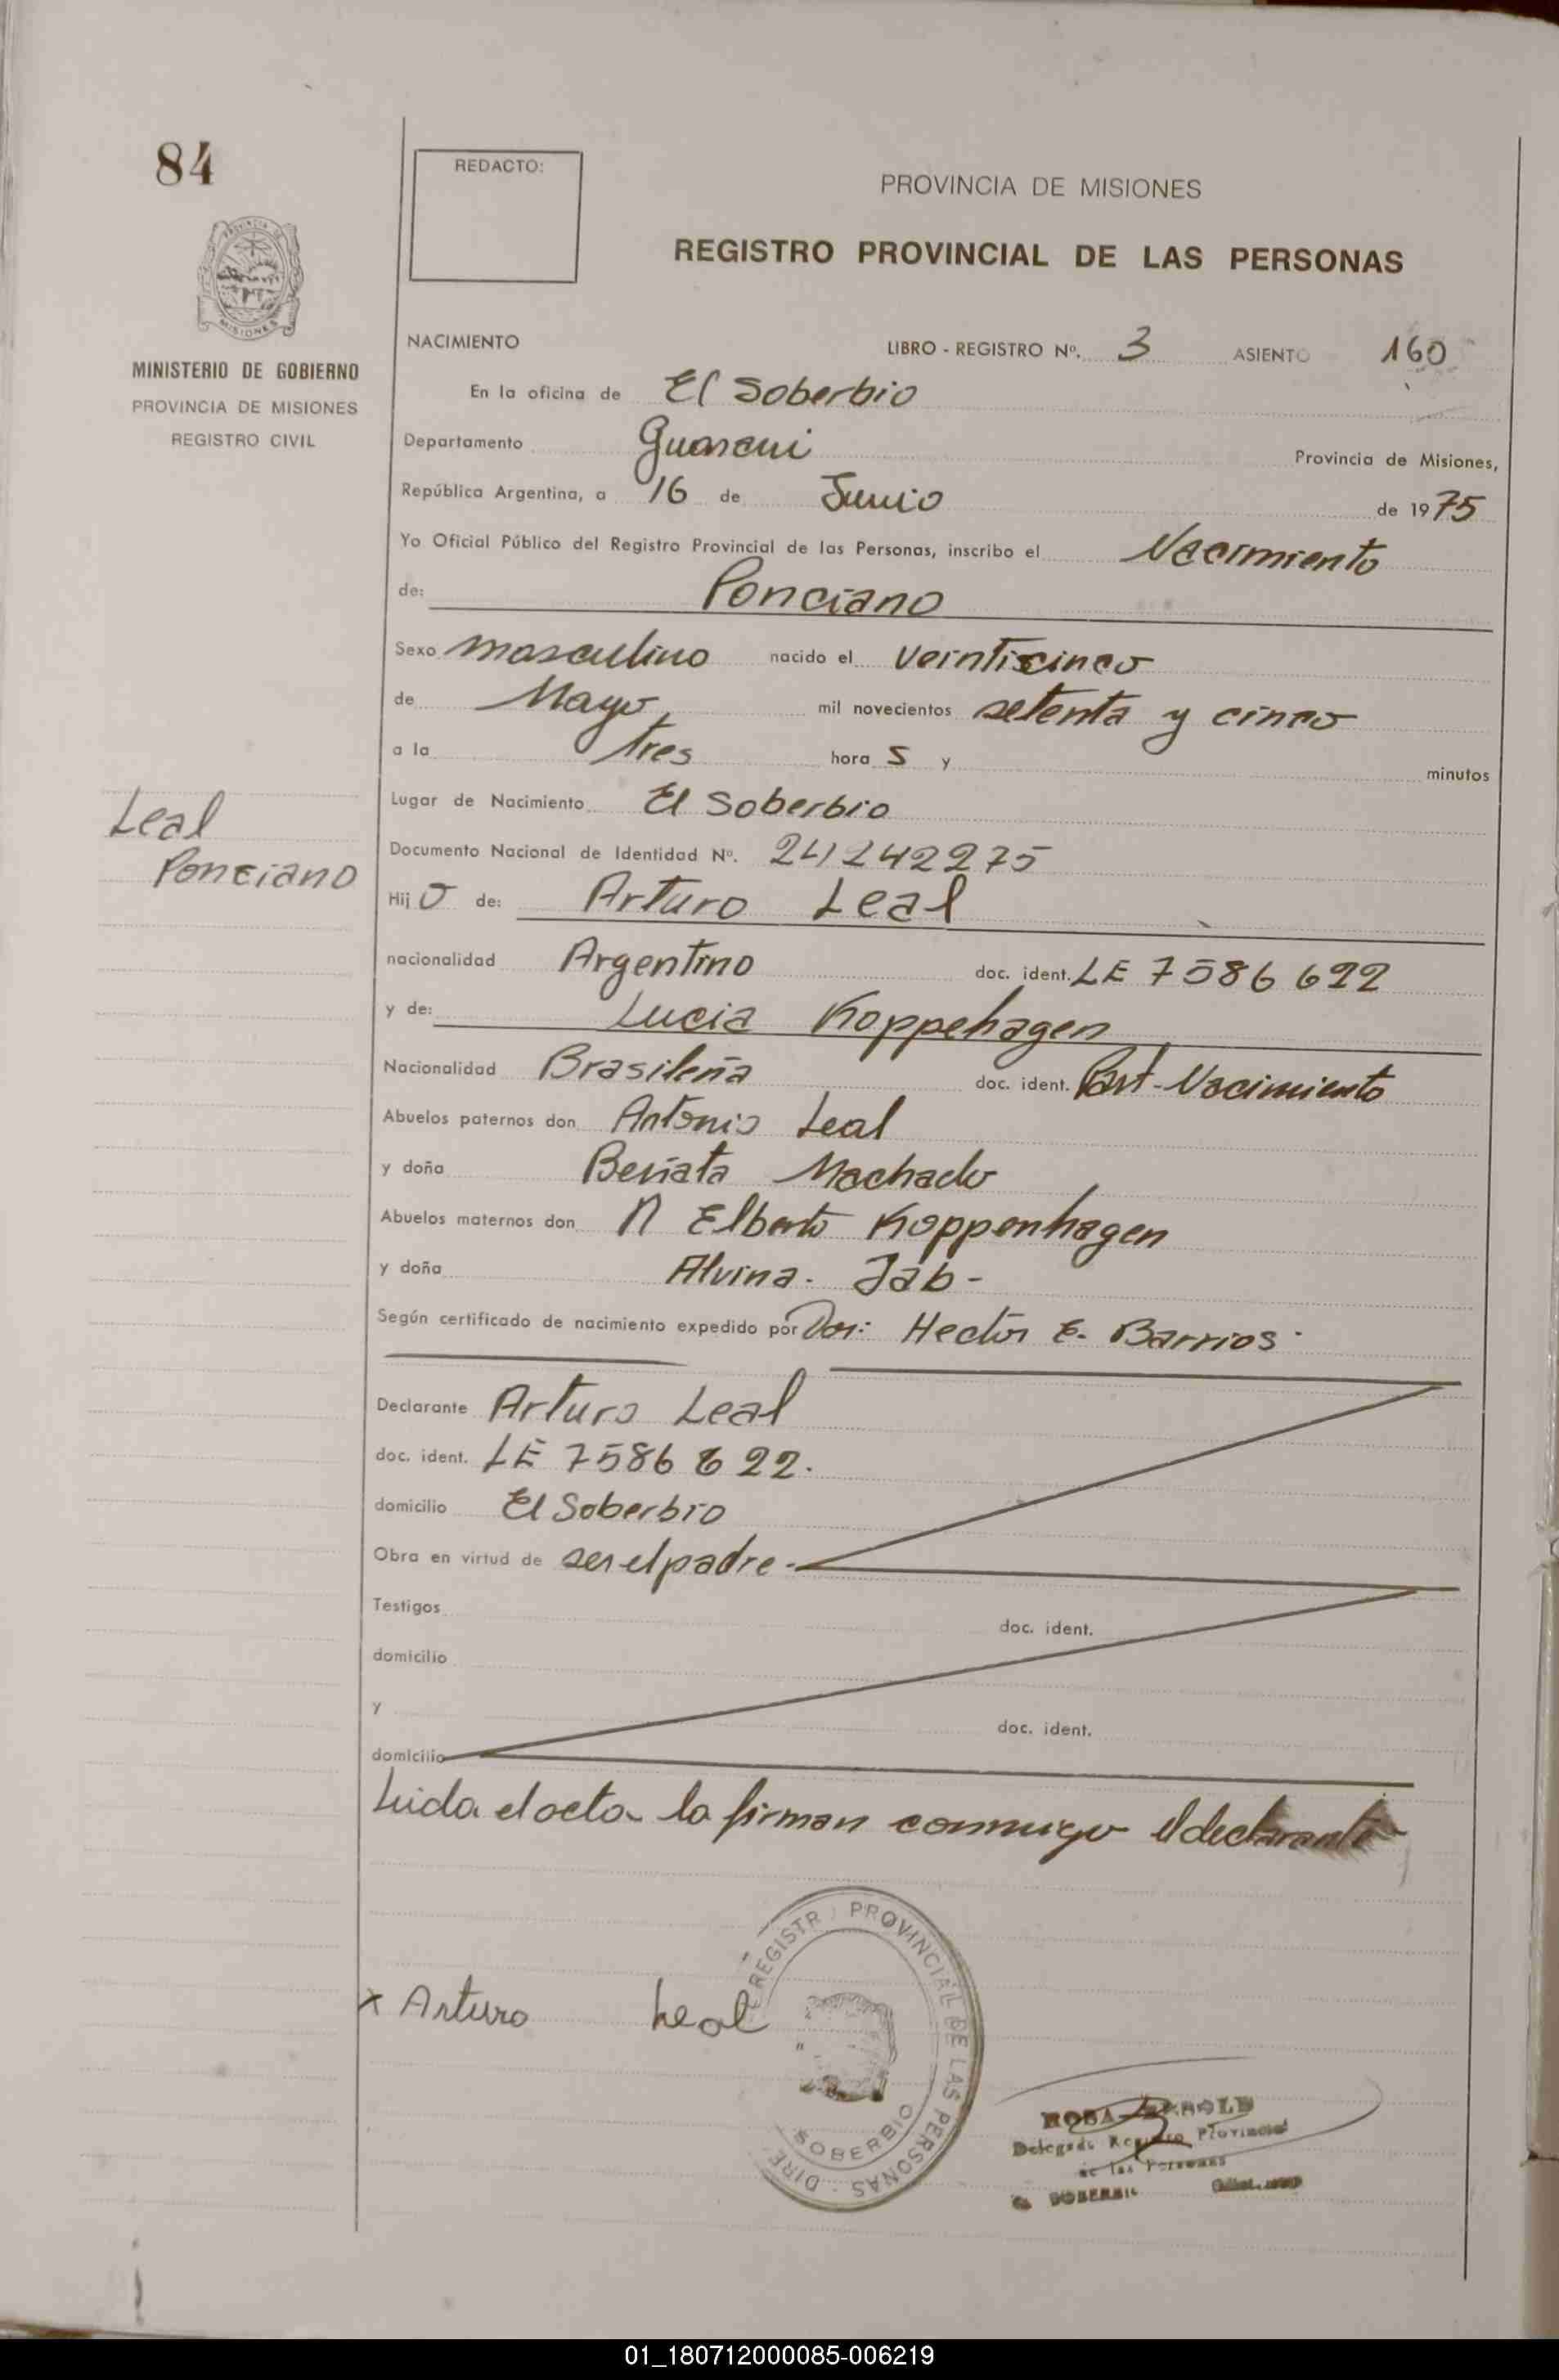 84
REDACTO:
PROVINCIA DE MISIONES
REGISTRO PROVINCIAL DE LAS PERSONAS
MISIONES
MINISTERIO DE GOBIERNO
PROVINCIA DE MISIONES
REGISTRO CIVIL
NACIMIENTO LIBRO - REGISTRO Nº. 3 ASIENTO 160
En la oficina de El Soberbio
Departamento Guarani Provincia de Misiones,
República Argentina, a 16 de Junio de 1975
Yo Oficial Público del Registro Provincial de las Personas, inscribo el Nacimiento
de: Ponciano
Sexo masculino nacido el veinticinco
de Mayo mil novecientos setenta y cinco
a la tres hora s y minutos
Lugar de Nacimiento El Soberbio
Leal
Ponciano
Documento Nacional de Identidad Nº. 24242275
Hijo de: Arturo Leal
nacionalidad Argentino doc. ident. LE 7586622
y de: Lucia Koppehagen
Nacionalidad Brasileña doc. ident. Part-Nacimiento
Abuelos paternos don Antonio Leal
y doña Beriata Machado
Abuelos maternos don Elberto Koppenhagen
y doña Alvina. Jab-
Según certificado de nacimiento expedido por Dor: Hector E. Barrios.
Declarante Arturo Leal
doc. ident. LE 7586622.
domicilio El Soberbio
Obra en virtud de ser el padre-
Testigos doc. ident.
domicilio
y doc. ident.
domicilio
Leida el acta la firman conmigo el declarante
x Arturo Leal
REGISTR PROVINCIAL DE LAS PERSONAS - DIRE
SOBERBIO
ROSA
Delegada Registro Provincial
de las Personas
SOBERBIO
01_180712000085-006219